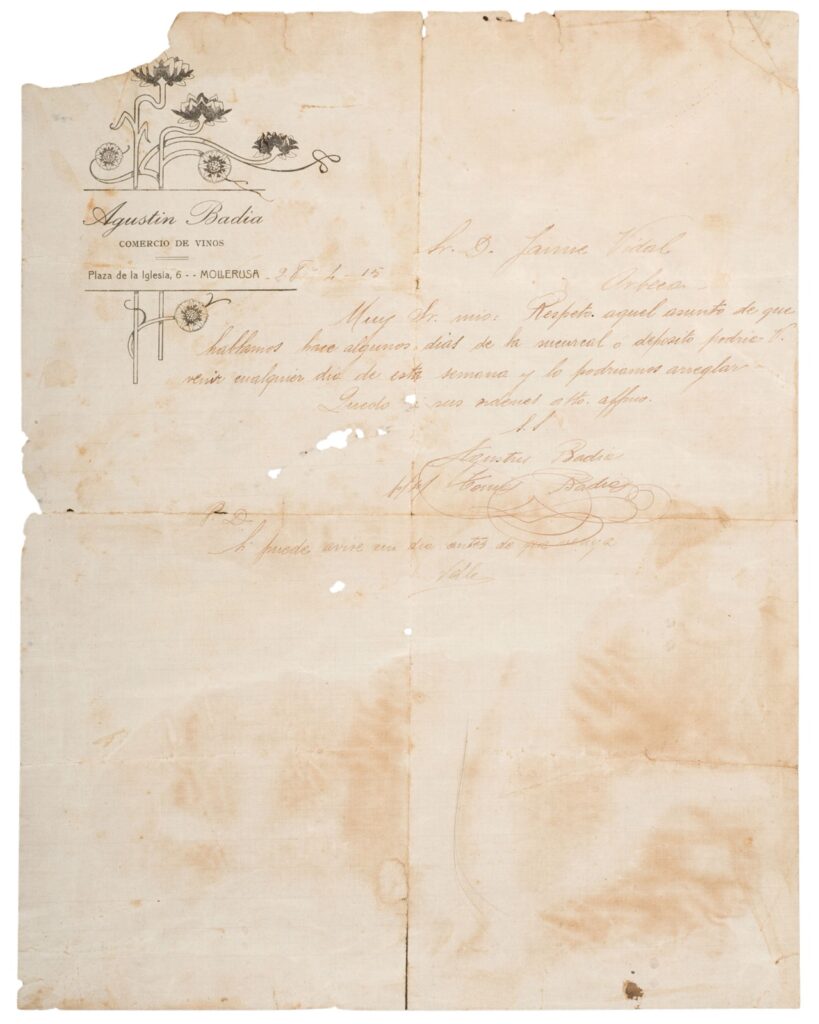 Agustin Badia
COMERCIO DE VINOS
Plaza de la Iglesia, 6 - - MOLLERUSA 28 - 2 - 15
Sr. D. Jaime Vidal
Arbeca
Muy Sr. mio: Respeto aquel asunto de que
hablamos hace algunos dias de la sucursal o deposito podria V.
venir cualquier dia de esta semana y lo podriamos arreglar
Quedo a sus ordenes atto. affmo.
S.S
Agustin Badia
Badia
P.D.
Si puede avise un dia antes de que venga
Vale